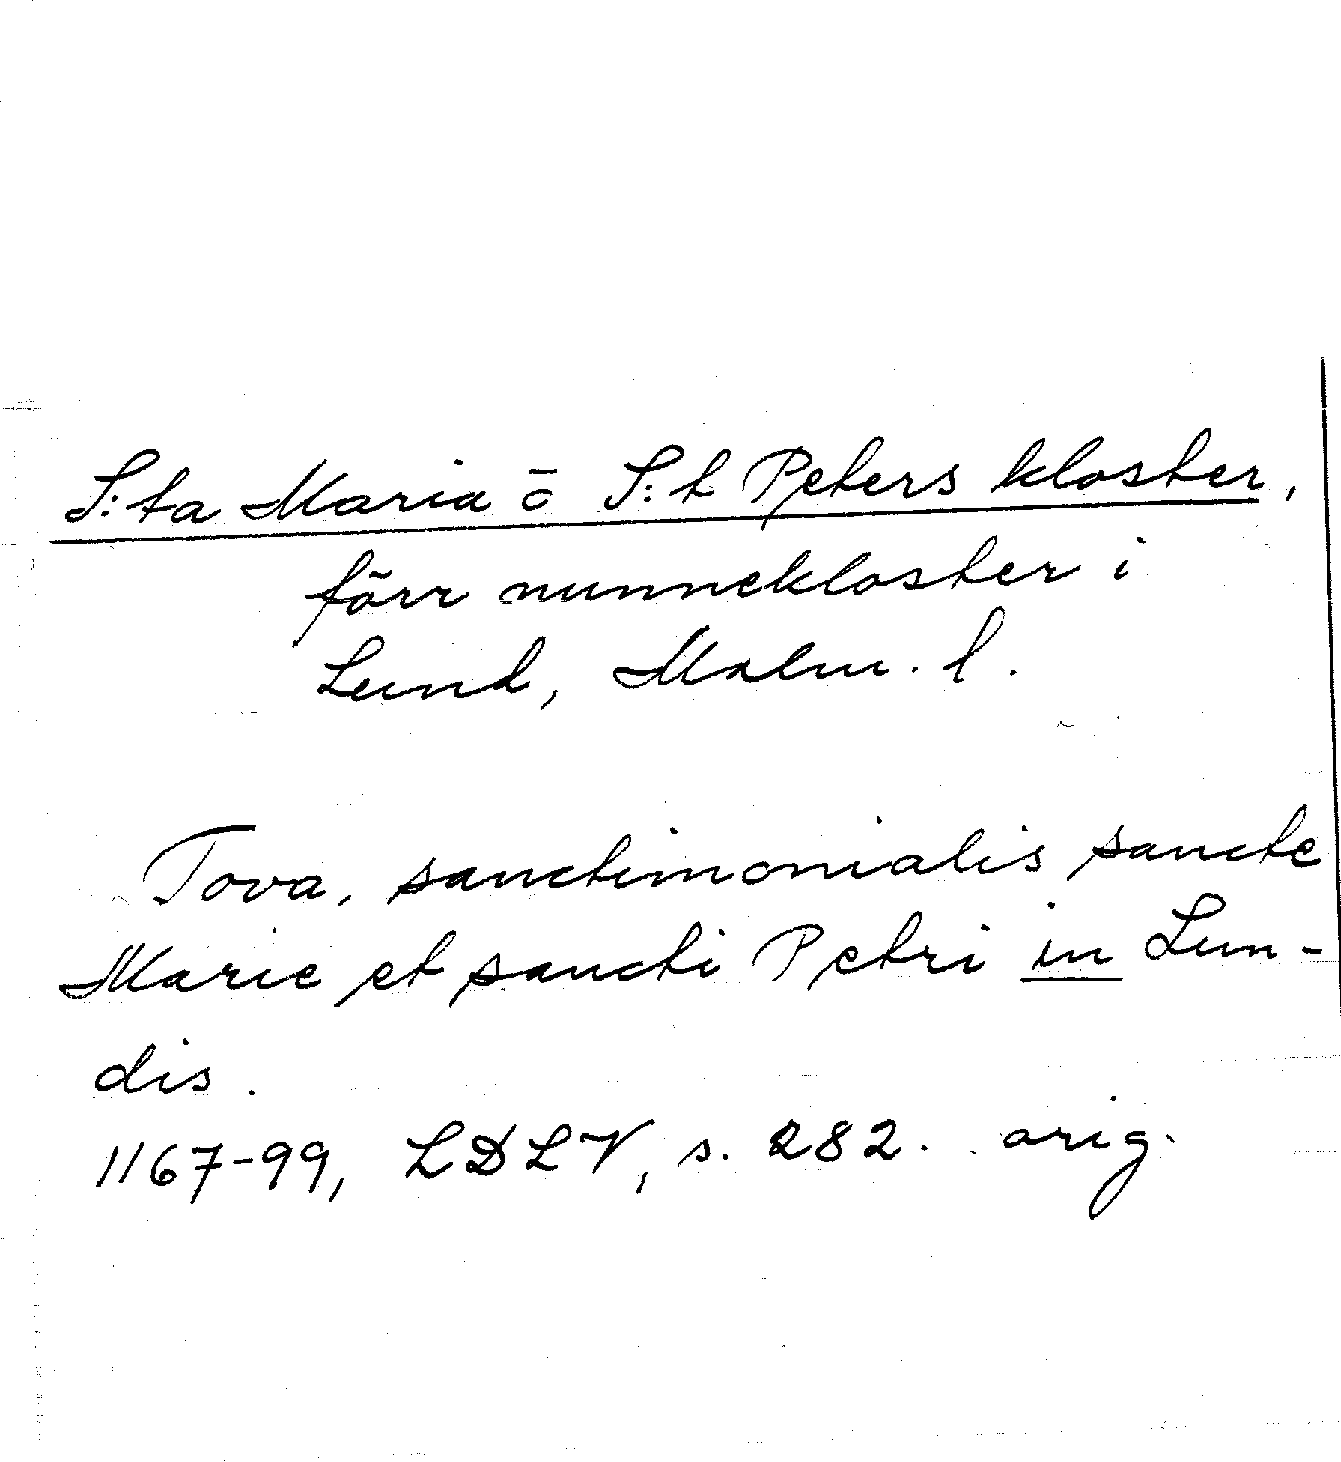 S:ta Maria ō S:t Peters kloster,
förr nunnekloster i
Lund, Malm. l.
Tova, sanctimonialis sancte
Marie et sancti Petri in Lun-
dis.
1167-99, LDLV, s. 282. orig.